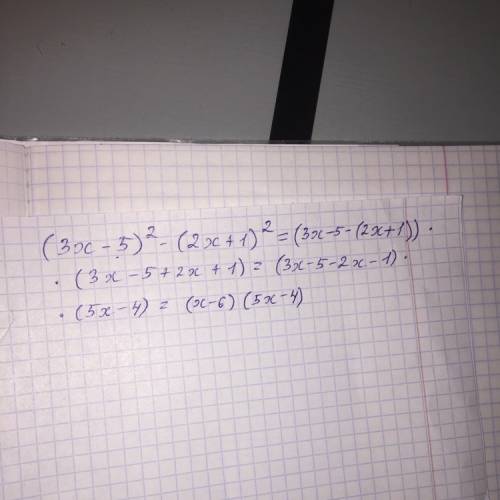 (3x-5)² - (2x+1)² = (3x-5-(2x+1)) ·
· (3x-5+2x+1) = (3x-5-2x-1) ·
· (5x-4) = (x-6) (5x-4)